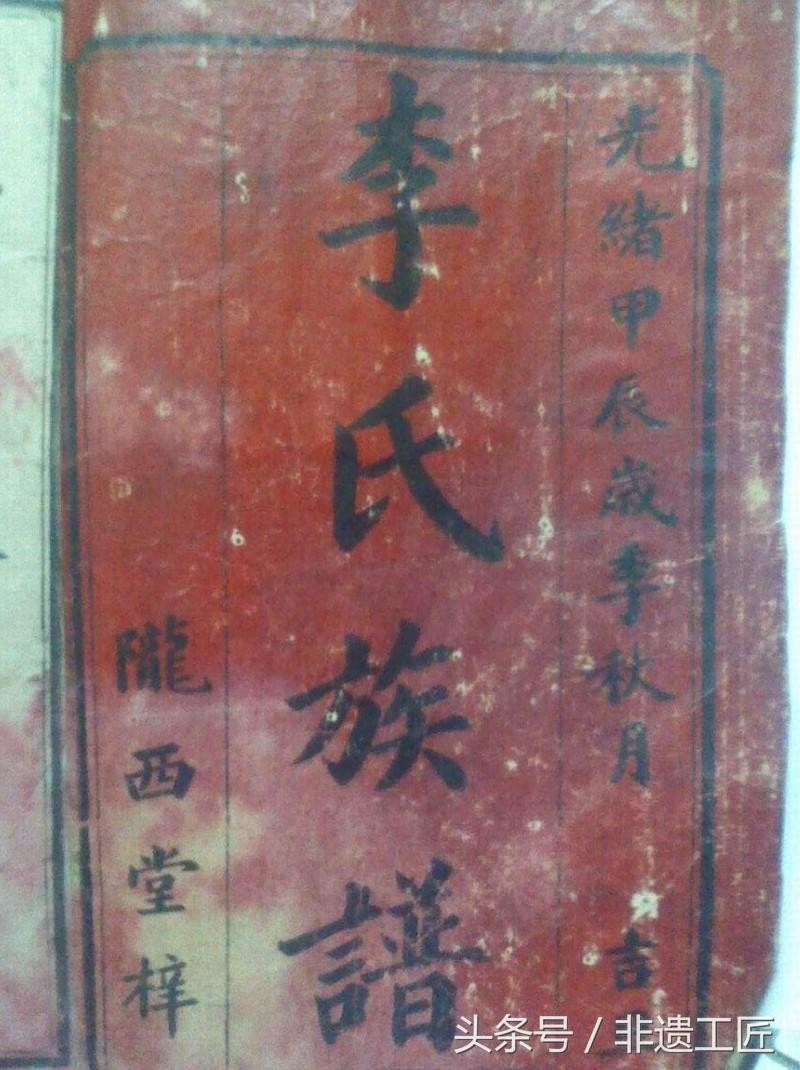 光緒甲辰歲季秋月 吉
李氏族譜
隴西堂梓
头条号 / 非遗工匠